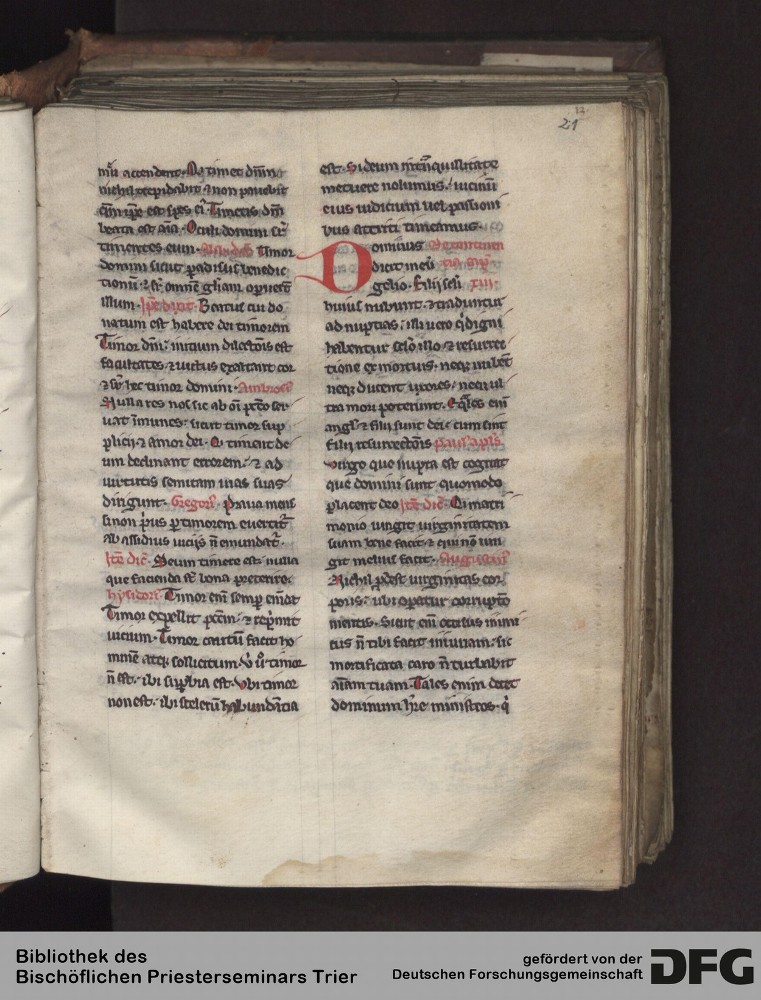 21
nichil trepidabit ⁊ non pauebit
beata est aīa. Oculi domini sr̄
timentes eum. Timor
domini sicut paradisus benedic
illum. Beatus cui do
natum est habere dei timorem
Timor dn̄i initium dilectōis est
facultates ⁊ uirtus exaltant cor
⁊ sr̄ hec timor domini. Ambrosius
Nulla res nos sic ab oī pctō ser
uat īmunes: sicut timor sup
plicij ⁊ amor dei. Qi timent de
um declinant errorem: ⁊ ad
uirtutis semitam uias suas
dirigunt. Gregori9. Praua mens
si non pri9 per timorem euertit̄
ab assiduis uicijs n̄ emundat̄.
Itē dic̄. Deum timere est: nulla
que facienda st̄ bona preterire.
hysidor9. Timor em̄ semper em̄dat
Timor expellit pcc̄m: ⁊ rep̄mit
uicium. Timor cautū facit ho
minē atq; sollicitum. Vᵢ uº timor
n̄ est: ibi supbia est. Vbi timor
non est: ibi scelerū habundācia
est. Si deum in tnquillitate
metuere nolumus: uicinū
eius iudicium uel passioni
bus attriti timeamus.
Dominus
dicit in eu
gelio. Filij seli
huius nubunt: ⁊ traduntur
ad nuptias: illi uero q̇ digni
habentur seclo illo: ⁊ resurrec
tione ex mortuis: neq; nubent
neq; ducent uxores: neq; ul
tra mori poterunt. Eqles em̄
angl̄s ⁊ filij sunt dei: cum sint
filij resurrectōis Paul9 apl9.
Virgo que nupta est cogitat
que domini sunt quomodo
placent deo Itē dic̄. Qi matri
monio iungit uirginitatem
suam bene facit: ⁊ qui nō iun
git melius facit. Augustin9
Nichil pdest uirginitas cor
poris: ubi opatur corruptō
mentis. Sicut em̄ occisus inimi
cus n̄ tibi facit iniuriam: sic
mortificata caro n̄ turbabit
aīam tuam. Tales enim decet
dominum hr̄e ministros. q̇
Bibliothek des
Bischöflichen Priesterseminars Trier
gefördert von der
Deutschen Forschungsgemeinschaft
DFG